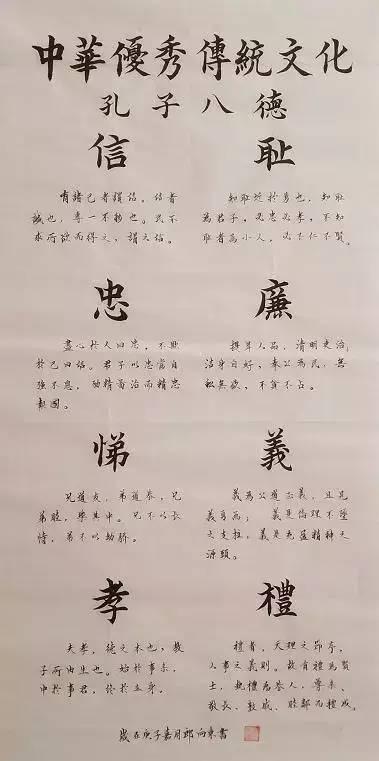 中華優秀傳統文化
孔子八德
信
有諸己者謂信。信者
誠也，專一不移也。民不
求所欲而得之，謂之信。
耻
知耻近於勇也，知耻
為君子，必忠必孝，不知
耻者為小人，必不仁不賢。
忠
盡心於人曰忠，不欺
於己曰信。君子以忠當自
強不息，勵精啚治而精忠
報國。
廉
人品，清明吏治，
潔身自好，奉公為民，無
私無欲，不貪不占。
悌
兄道友，弟道恭，兄
弟睦，樂其中。兄不以長
情，弟不以幼驕。
義
義為公道正義，且見
義勇為；義是倫理不墮
之支柱，義是民族精神之
源頭。
孝
夫孝，德之本也，教
子所由生也。始於事親，
中於事君，終於立身。
禮
禮者，天理之節文，
人事之義則。故有禮為賢
士，執禮為恭人，尊親、
敬長、敦戚、睦鄰而禮成。
歲在庚子嘉月郎向東書